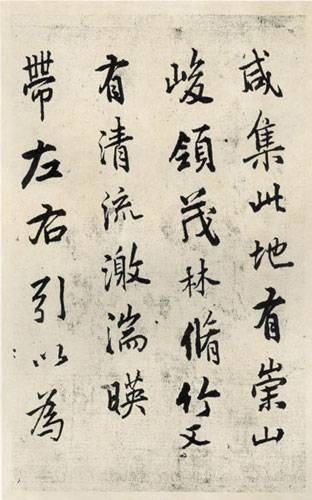 咸集此地有崇山
峻領茂林脩竹又
有清流激湍暎
帶左右引以為